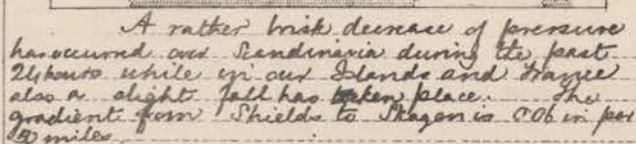 A rather brisk decrease of pressure
has occurred over Scandinavia during the past
24 hours while in our Islands and France
also a slight fall has taken place. The
gradient from Shields to Skagen is 0.06 in per
50 miles